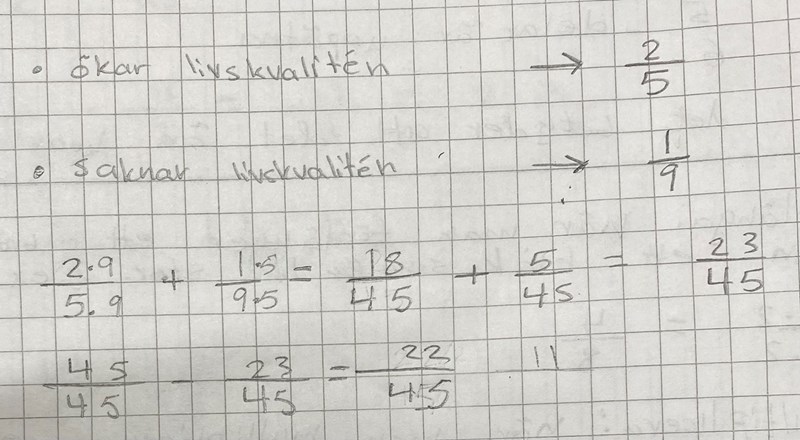 • ökar livskvalitén → 2/5
• saknar livskvalitén → 1/9
2·9/5·9 + 1·5/9·5 = 18/45 + 5/45 = 23/45
45/45 - 23/45 = 22/45 11